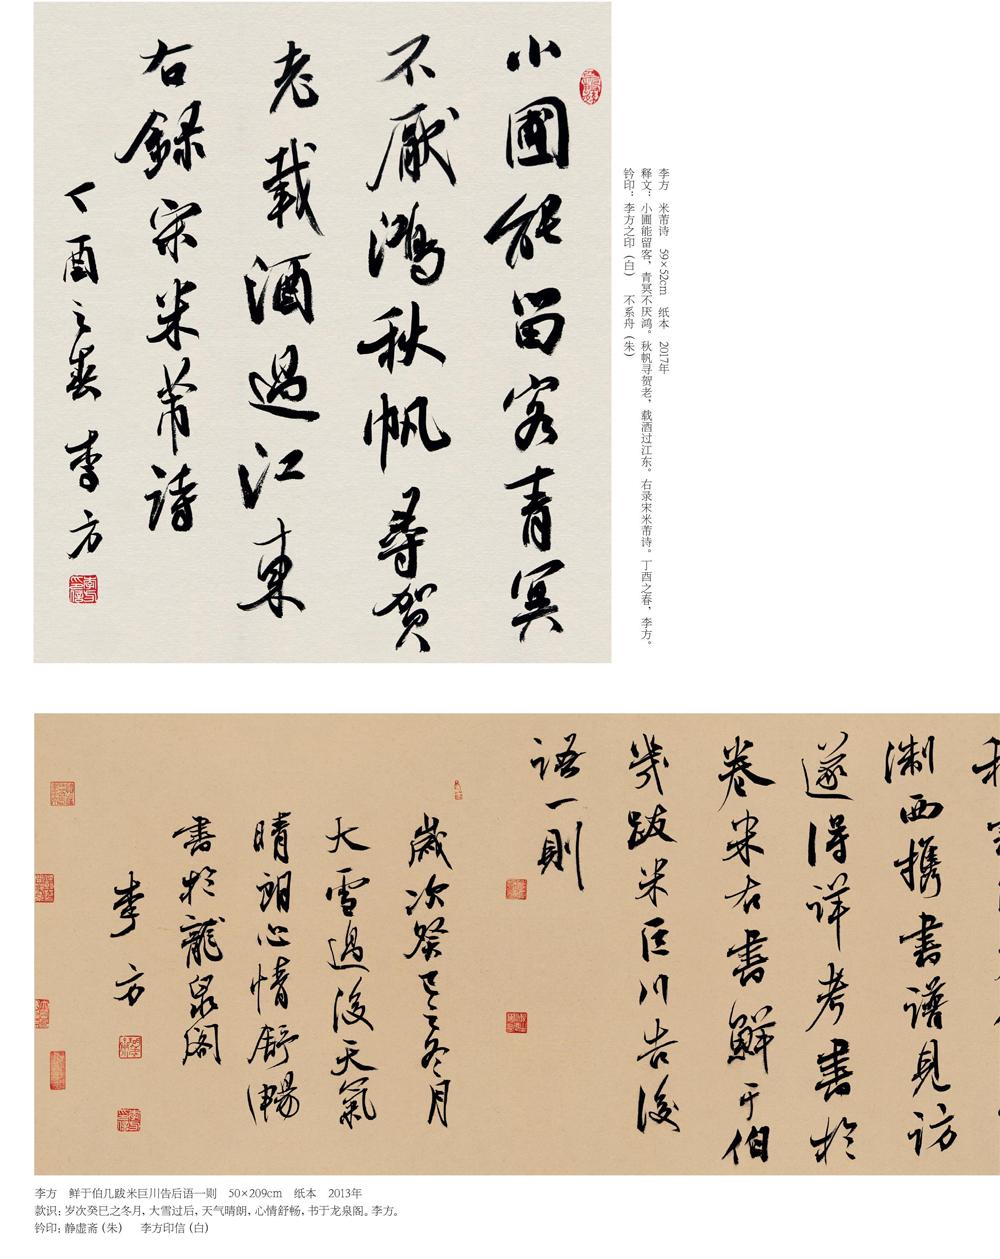 小圃能留客青冥
不厭鴻秋帆尋賀
老載酒過江東
右録宋米芾詩
丁酉之春 李方
李方 米芾诗 59×52cm 纸本 2017年
释文：小圃能留客，青冥不厌鸿。秋帆寻贺老，载酒过江东。右录宋米芾诗。丁酉之春，李方。
钤印：李方之印（白） 不系舟（朱）
淛西攜書譜見訪
遂得詳考書於
卷米右書鮮于伯
幾跋米巨川告後
語一則
歲次癸巳之冬月
大雪過後天氣
晴朗心情舒暢
書於龍泉閣
李方
李方 鲜于伯几跋米巨川告后语一则 50×209cm 纸本 2013年
款识：岁次癸巳之冬月，大雪过后，天气晴朗，心情舒畅，书于龙泉阁。李方。
钤印：静虚斋（朱） 李方印信（白）